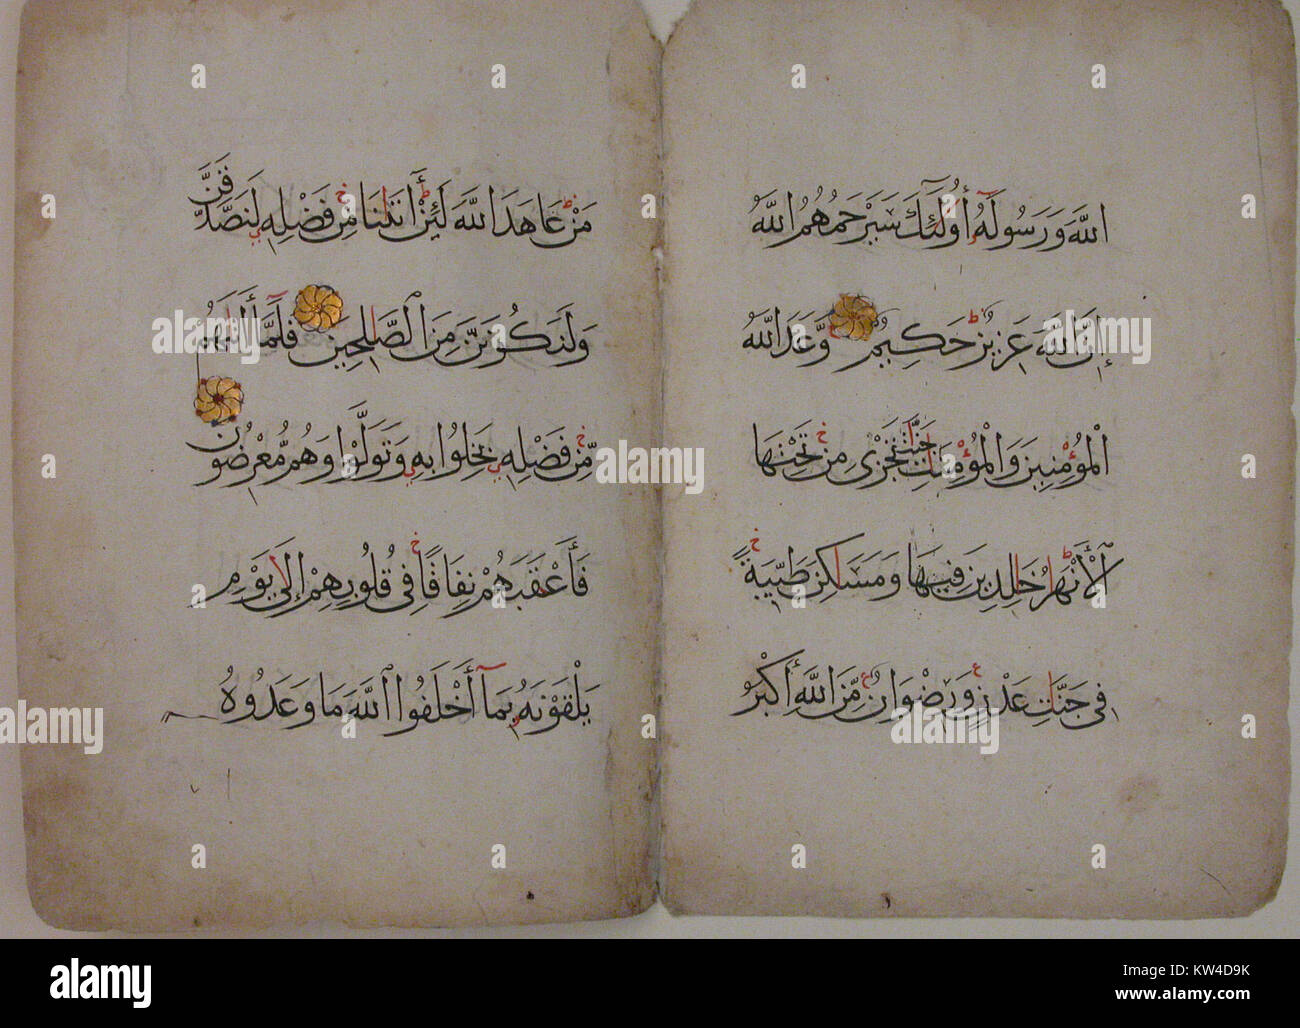 اللَّهَ وَرَسُولَهُ أُولَٰئِكَ سَيَرْحَمُهُمُ اللَّهُ
إِنَّ اللَّهَ عَزِيزٌ حَكِيمٌ وَعَدَ اللَّهُ
الْمُؤْمِنِينَ وَالْمُؤْمِنَاتِ جَنَّاتٍ تَجْرِي مِن تَحْتِهَا
الْأَنْهَارُ خَالِدِينَ فِيهَا وَمَسَاكِنَ طَيِّبَةً
فِي جَنَّاتِ عَدْنٍ وَرِضْوَانٌ مِّنَ اللَّهِ أَكْبَرُ
مَنْ عَاهَدَ اللَّهَ لَئِنْ آتَانَا مِن فَضْلِهِ لَنَصَّدَّقَنَّ
وَلَنَكُونَنَّ مِنَ الصَّالِحِينَ فَلَمَّا آتَاهُم
مِّن فَضْلِهِ بَخِلُوا بِهِ وَتَوَلَّوا وَهُم مُّعْرِضُونَ
فَأَعْقَبَهُمْ نِفَاقًا فِي قُلُوبِهِمْ إِلَىٰ يَوْمِ
يَلْقَوْنَهُ بِمَا أَخْلَفُوا اللَّهَ مَا وَعَدُوهُ
alamy stock photo
a
alamy
KW4D9K
www.alamy.com